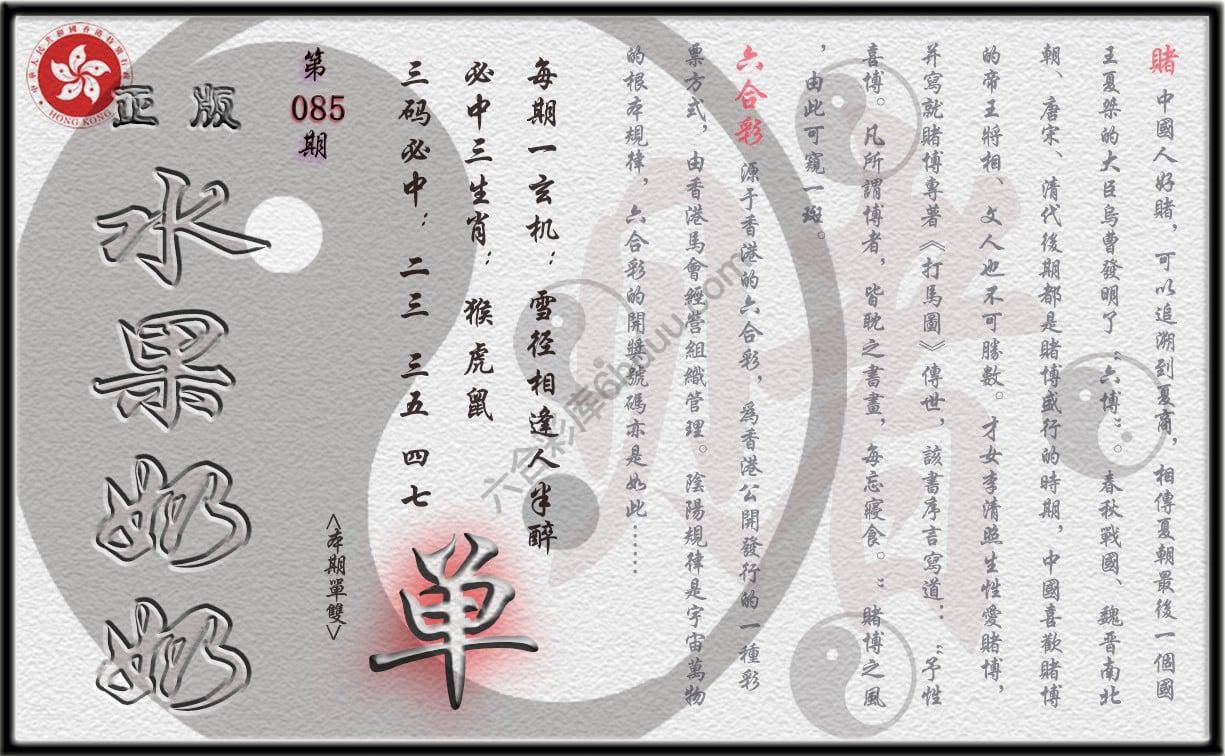 賭 中國人好賭，可以追溯到夏商，相傳夏朝最後一個國
王夏桀的大臣烏曹發明了“六博”。春秋戰國、魏晋南北
朝、唐宋、清代後期都是賭博盛行的時期，中國喜歡賭博
的帝王將相、文人也不可勝數。才女李清照生性愛賭博，
并寫就賭博專著《打馬圖》傳世，該書序言寫道：“予性
喜博。凡所謂博者，皆耽之晝，每忘寢食。”賭博之風
，由此可窺一斑。
六合彩 源于香港的六合彩，為香港公開發行的一種彩
票方式，由香港馬會經營組織管理。陰陽規律是宇宙萬物
的根本規律，六合彩的開獎號碼亦是如此……
每期一玄机：雪径相逢人半醉
必中三生肖：猴虎鼠
三码必中：二三 三五 四七
单
<本期單雙>
第
085
期
正版
水果奶奶
中華人民共和國香港特別行政區
HONG KONG
六合彩库6hduu.com